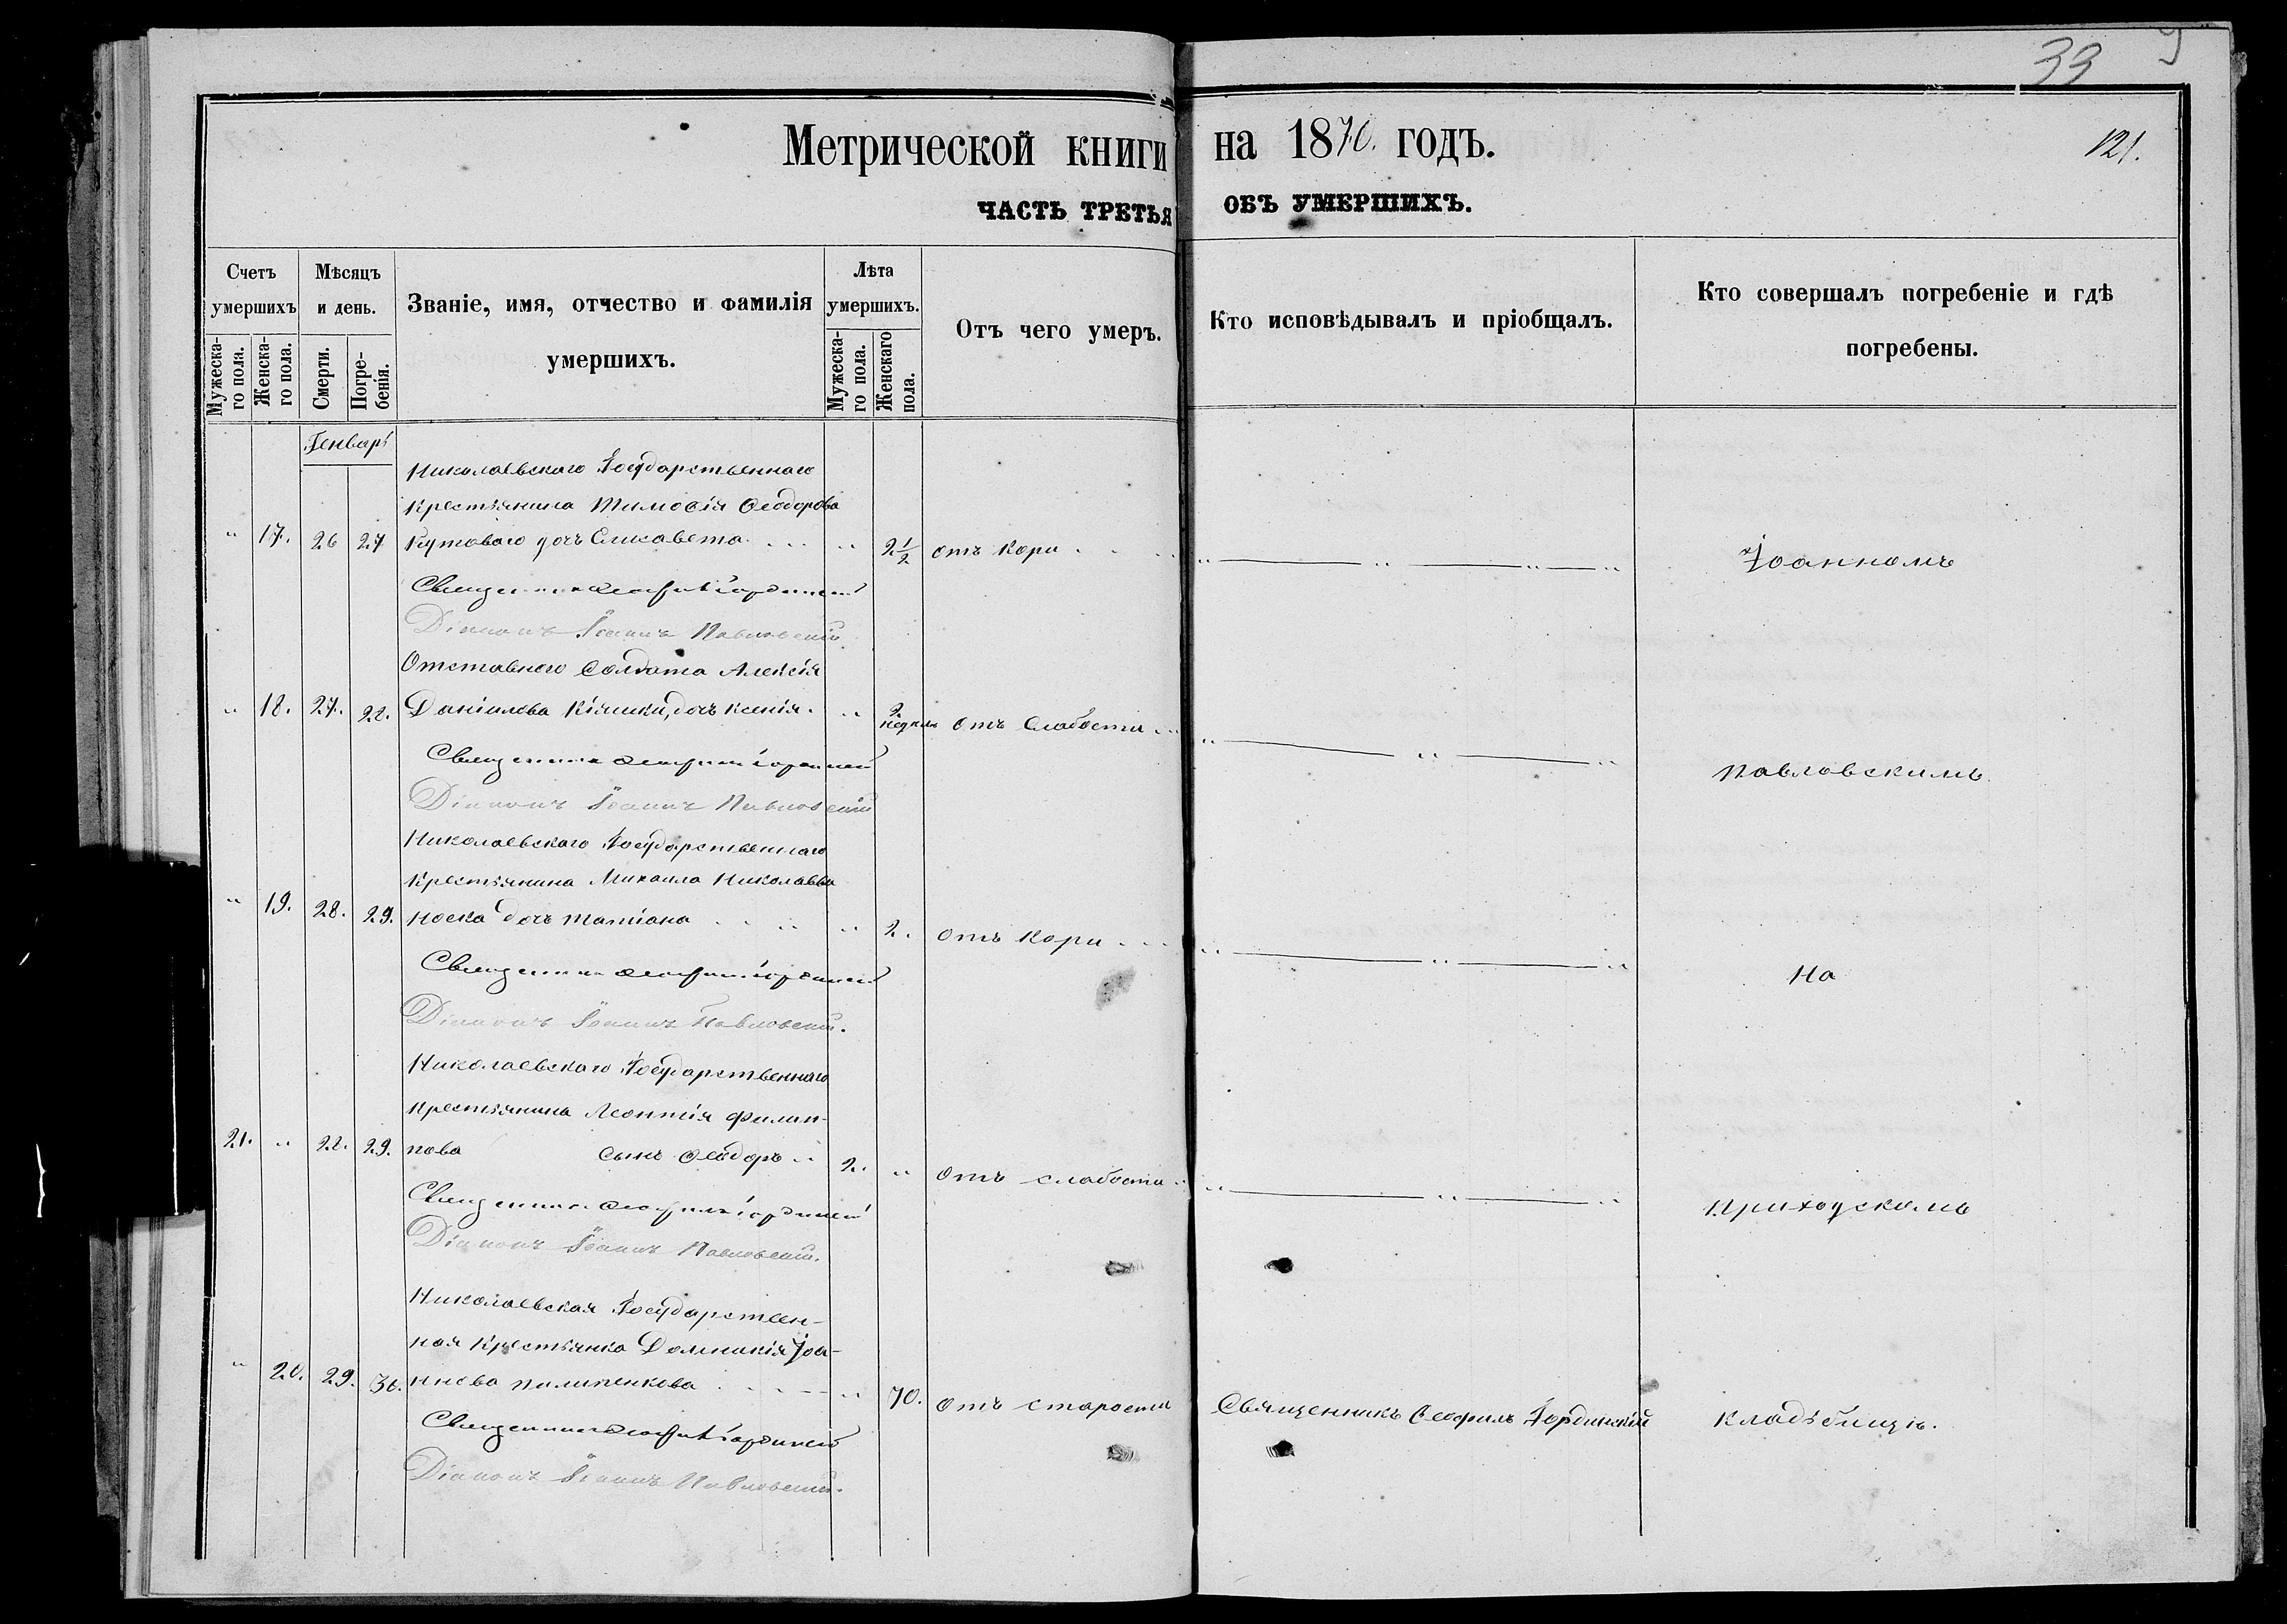 33
Метрической книги на 1870. годъ.
121.
ЧАСТЬ ТРЕТЬЯ ОБЪ УМЕРШИХЪ.
Счетъ умершихъ
Мужеска-го пола.
Женска-го пола.
Мѣсяцъ и день.
Смерти.
Погре-бенія.
Званіе, имя, отчество и фамилія
умершихъ.
Лѣта умершихъ.
Мужеска-го пола.
Женскаго пола.
Отъ чего умеръ.
Кто исповѣдывалъ и пріобщалъ.
Кто совершалъ погребеніе и гдѣ
погребены.
Генварь
Николаевскаго Государственнаго
Крестьянина Тимоѳія Ѳеодорова
" 17. 26 27 Кутоваго дочь Елисавета " 2 1/2 отъ Кори " " " " Іоанномъ
Священникъ Ѳеофилъ Гординскій
Діаконъ Іоаннъ Павловскій
Отставного Солдата Алексія
" 18. 27. 28. Даніилова Кіяшки, дочь Ксенія. " 2 недели отъ Слабости " " " Павловскимъ
Священникъ Ѳеофилъ Гординскій
Діаконъ Іоаннъ Павловскій
Николаевскаго Государственнаго
Крестьянина Михаила Николаева
" 19. 28. 29. Носка дочь Татіана " 2. отъ Кори " " " На
Священникъ Ѳеофилъ Гординскій
Діаконъ Іоаннъ Павловскій.
Николаевскаго Государственнаго
Крестьянина Леонтія Филип-
21. " 28. 29. пова сынъ Ѳеодоръ 2. " отъ слабости " " " Приходскомъ
Священникъ Ѳеофилъ Гординскій
Діаконъ Іоаннъ Павловскій.
Николаевская Государствен-
ная Крестьянка Домникія Іоа-
" 20. 29. 30. ннова Пилипенкова " 70. отъ старости Священникъ Ѳеофилъ Гординскій Кладьбищѣ.
Священникъ Ѳеофилъ Гординскій
Діаконъ Іоаннъ Павловскій.